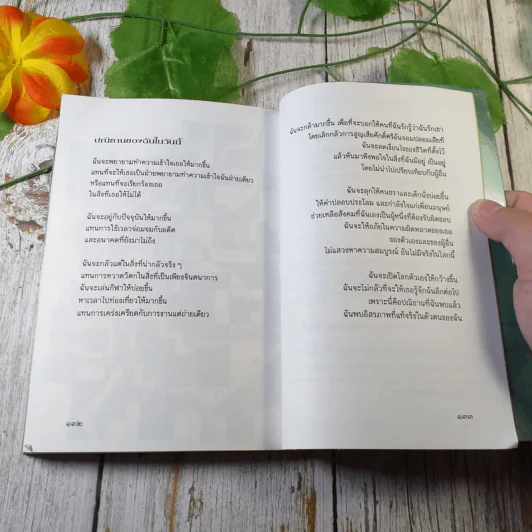 ปณิธานของฉันในวันนี้
ฉันจะพยายามทำความเข้าใจเธอให้มากขึ้น
แทนที่จะให้เธอเป็นฝ่ายพยายามทำความเข้าใจฉันฝ่ายเดียว
หรือแทนที่จะเรียกร้องเธอ
ในสิ่งที่เธอให้ไม่ได้
ฉันจะอยู่กับปัจจุบันให้มากขึ้น
แทนการใช้เวลาจ่อมจมกับอดีต
และอนาคตที่ยังมาไม่ถึง
ฉันจะกลัวแต่ในสิ่งที่น่ากลัวจริง ๆ
แทนการหวาดวิตกในสิ่งที่เป็นเพียงจินตนาการ
ฉันจะเล่นกีฬาให้บ่อยขึ้น
หาเวลาไปท่องเที่ยวให้มากขึ้น
แทนการเคร่งเครียดกับการงานแต่ถ่ายเดียว
๑๓๒
ฉันจะกล้ามากขึ้น เพื่อที่จะบอกให้คนที่ฉันรักรู้ว่าฉันรักเขา
โดยเลิกกลัวการสูญเสียศักดิ์ศรีอันจอมปลอมเสียที
ฉันจะลดเงื่อนไขของชีวิตที่ตั้งไว้
แล้วหันมาพึงพอใจในสิ่งที่ฉันมีอยู่ เป็นอยู่
โดยไม่นำไปเปรียบเทียบกับผู้อื่น
ฉันจะลุกให้คนชราและเด็กนั่งบ่อยขึ้น
ให้คำปลอบประโลม และกำลังใจแก่เพื่อนมนุษย์
ช่วยเหลือสังคมที่ฉันเองเป็นผู้หนึ่งที่ต้องรับผิดชอบ
ฉันจะให้อภัยในความผิดพลาดของเธอ
ของตัวเองและของผู้อื่น
ไม่แสวงหาความสมบูรณ์ อันไม่มีจริงในโลกนี้
ฉันจะเปิดโลกตัวเองให้กว้างขึ้น
ฉันจะไม่กลัวที่จะให้เธอรู้จักฉันอีกต่อไป
เพราะนี่คือปณิธานที่ฉันพบแล้ว
ฉันพบอิสรภาพที่แท้จริงในตัวตนของฉัน
๑๓๓